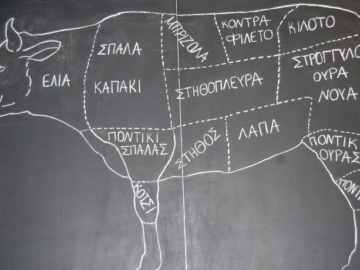 ΕΛΙΑ
ΣΠΑΛΑ
ΚΑΠΑΚΙ
ΜΠΡΙΖΟΛΑ
ΚΟΝΤΡΑ
ΦΙΛΕΤΟ
ΚΙΛΟΤΟ
ΣΤΗΘΟΠΛΕΥΡΑ
ΣΤΡΟΓΓΥΛΟ
ΟΥΡΑ
ΝΟΥΑ
ΠΟΝΤΙΚΙ
ΣΠΑΛΑΣ
ΣΤΗΘΟΣ
ΛΑΠΑ
ΠΟΝΤΙΚ
ΟΥΡΑΣ
ΚΟΤΣΙ